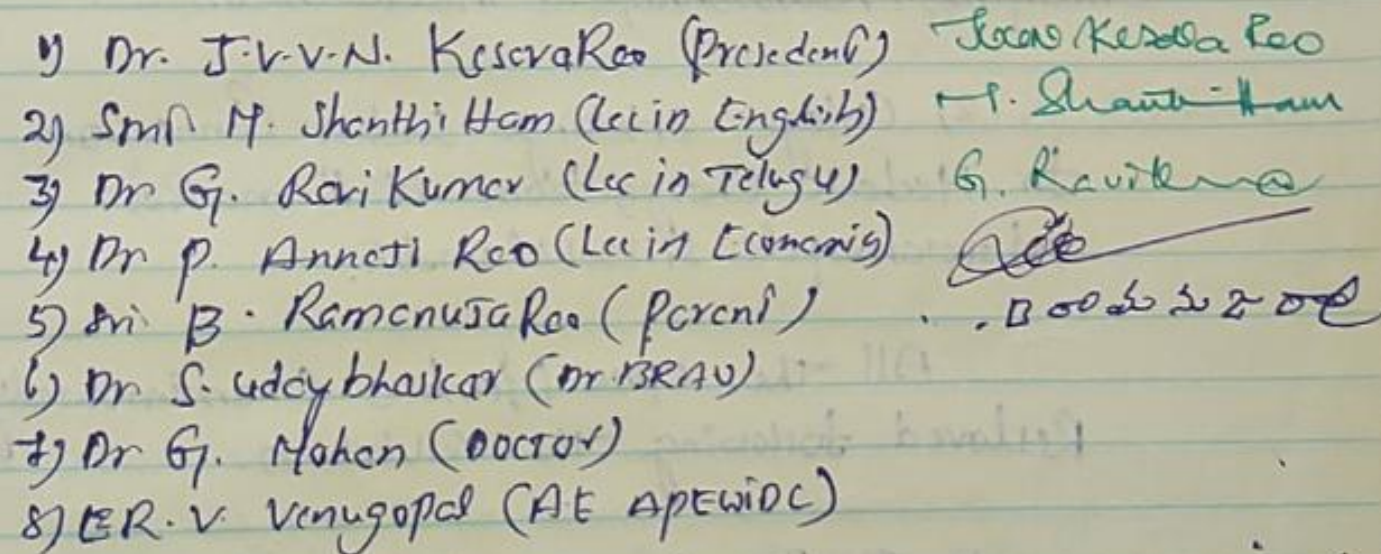 1) Dr. J.V.V.N. KesavaRao (Presedent) Kesava Rao
2) Smt M. Shanthi Ham (Lec in English) M. Shanti Ham
3) Dr G. Ravi Kumar (Lec in Telugu) G. Ravikuma
4) Dr P. Annaji Rao (Lec in Economis)
5) Sri B. RamanuJa Rao (Parent) B రామానుజ రావు
6) Dr S. Udaybhaskar (Dr. BRAU)
7) Dr G. Mohan (DOCTOR)
8) ER. V. Venugopal (AE APEWIDC)